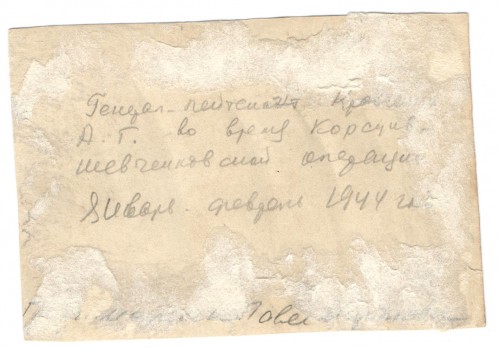 Генерал-лейтенант Кравче
А. Г. во время Корсунь-
Шевченковской операции
Январь-февраль 1944 г.